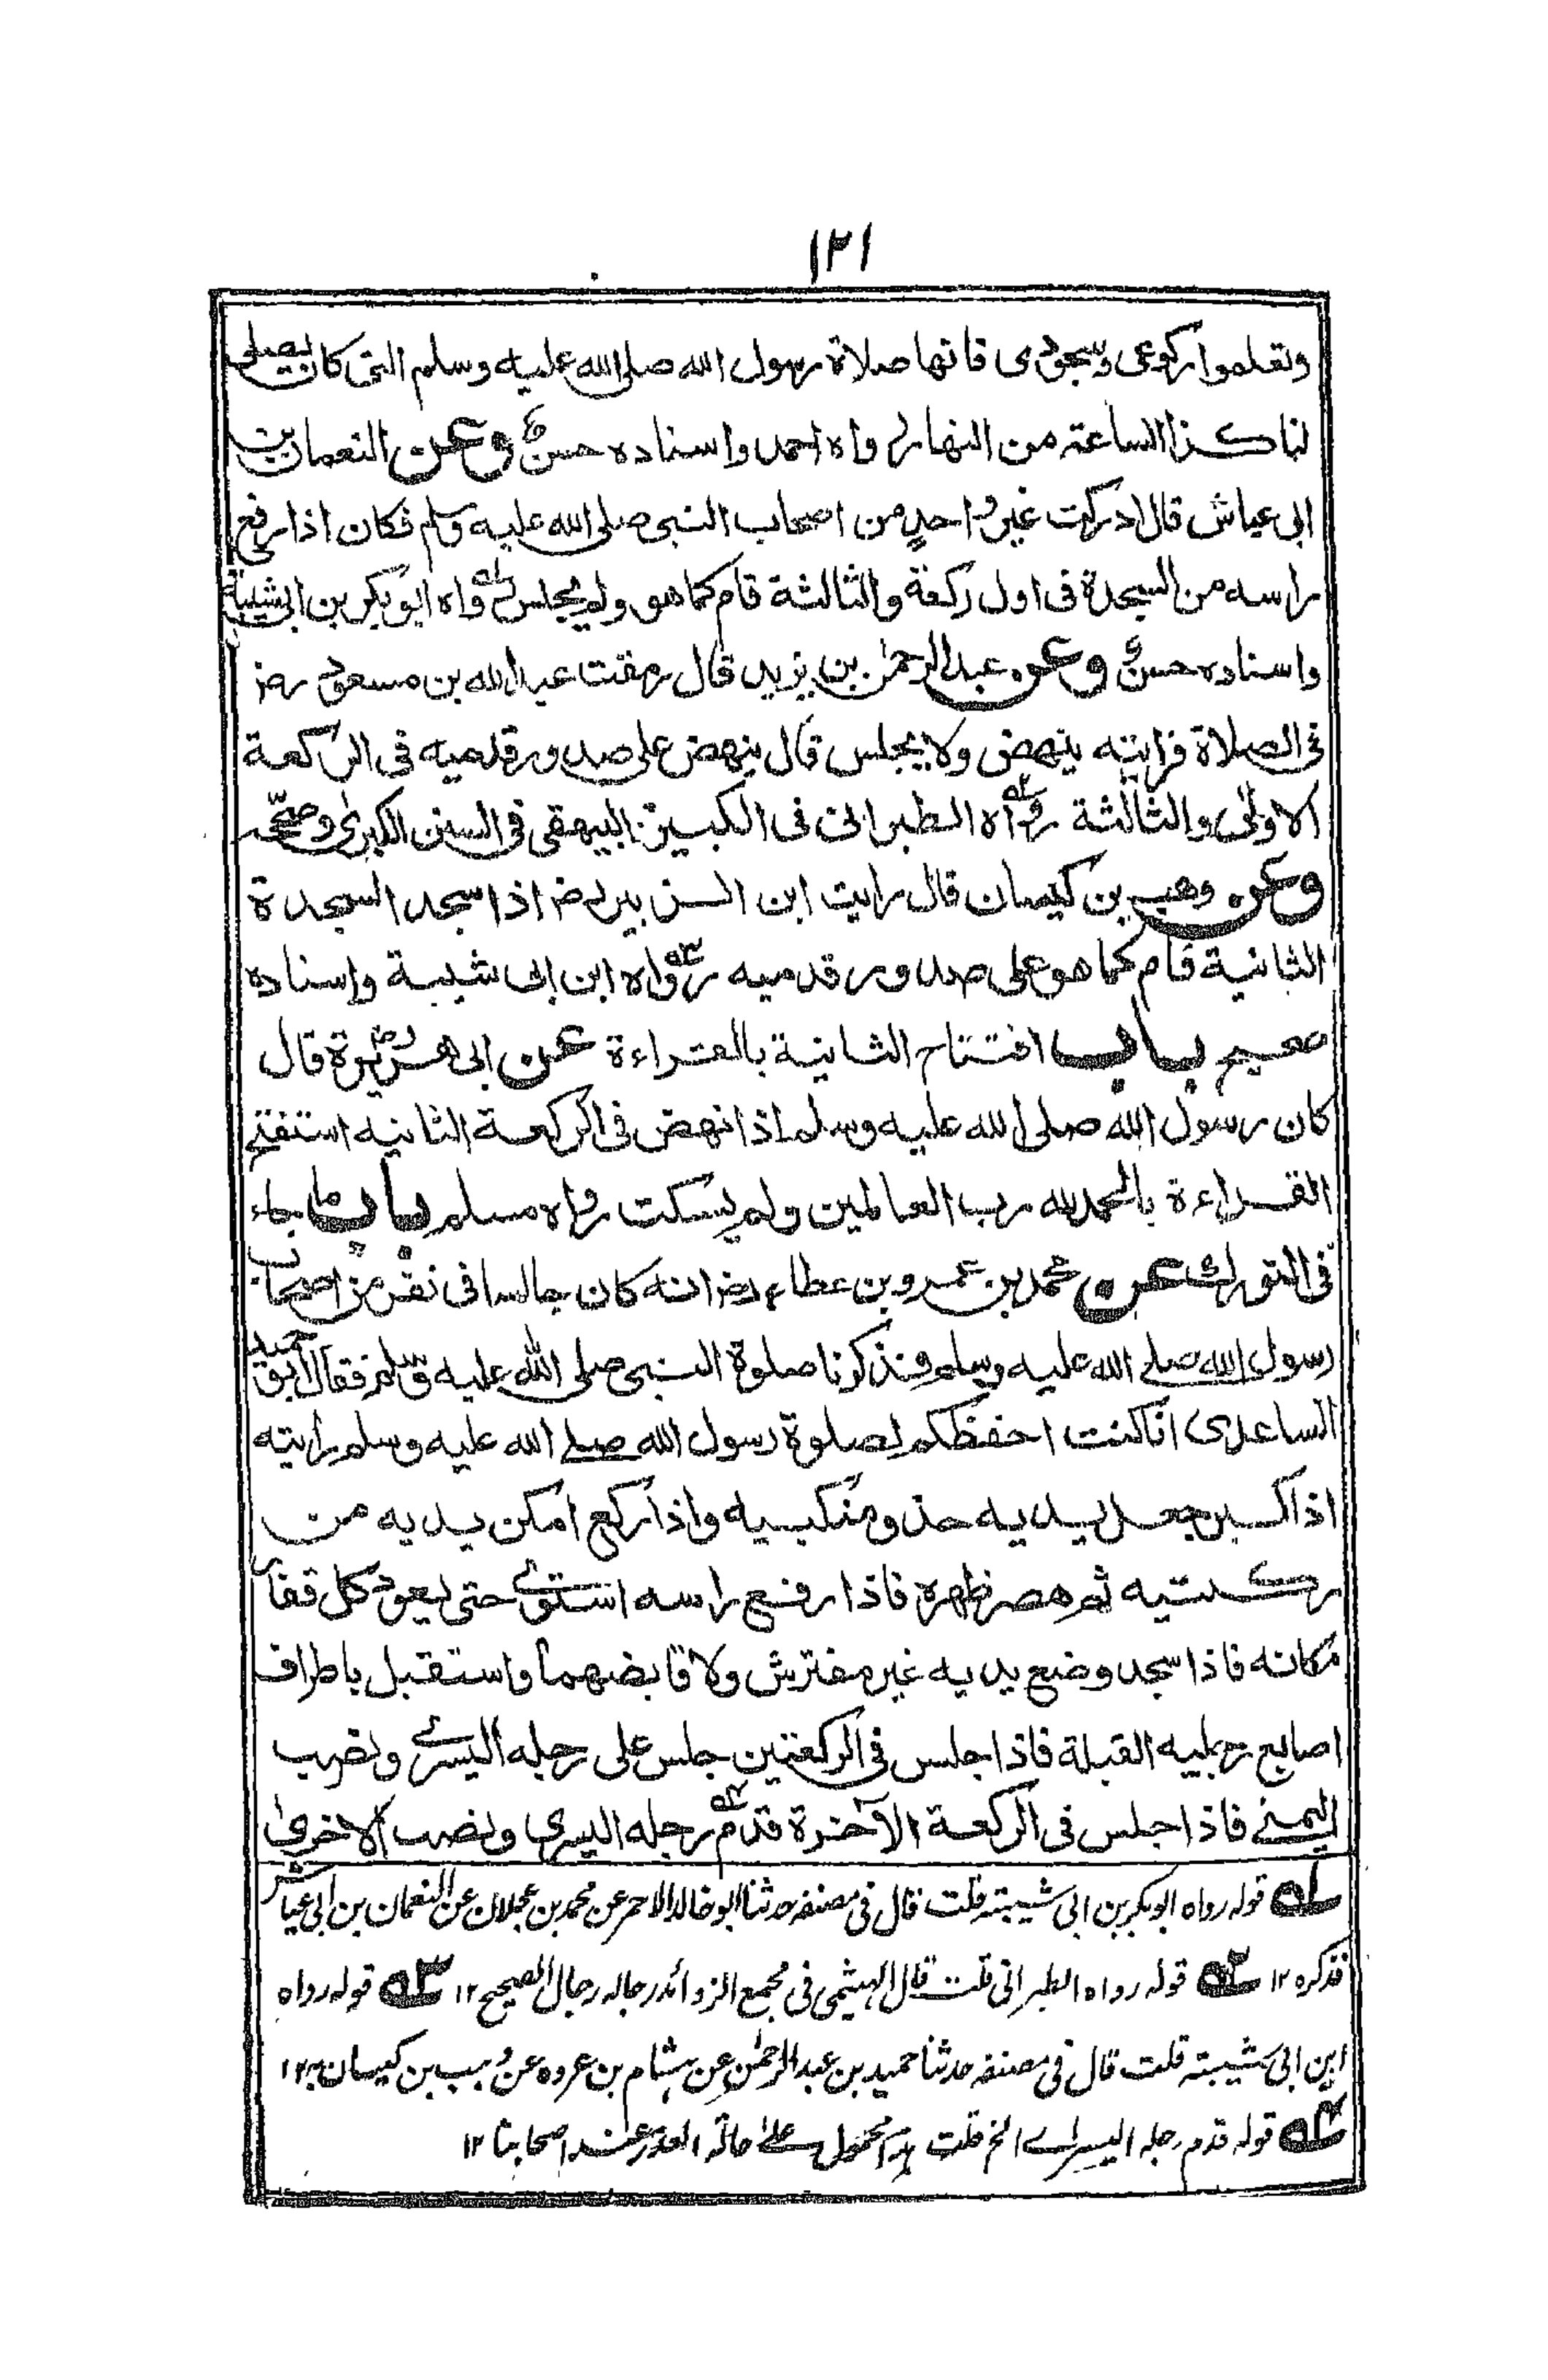 ١٢١
وتعلموا ركوعى وسجودى فانها صلاة رسول الله صلى الله عليه وسلم التى كان يصلى
لنا كذا الساعة من النهار رواه احمد واسناده حسن وعن النعمان بن
ابى عياش قال ادركت غير واحد من اصحاب النبى صلى الله عليه وسلم فكان اذا رفع
راسه من السجدة فى اول ركعة والثالثة قام كما هو ولم يجلس رواه ابو بكر بن ابى شيبة
واسناده حسن وعن عبد الرحمٰن بن يزيد قال رمقت عبد الله بن مسعود رض
فى الصلاة فرايته ينهض ولا يجلس قال ينهض على صدور قدميه فى الركعة
الاولىٰ والثالثة رواه الطبرانى فى الكبير والبيهقى فى السنن الكبرىٰ وصححه
وعن وهب بن كيسان قال رايت ابن الزبير رض اذا سجد السجدة
الثانية قام كما هو على صدور قدميه رواه ابن ابى شيبة واسناده
صحيح باب افتتاح الثانية بالقراءة عن ابى هريرة قال
كان رسول الله صلى الله عليه وسلم اذا نهض فى الركعة الثانيه استفتح
القراءة بالحمد لله رب العالمين ولم يسكت رواه مسلم باب ما جاء
فى التورك عن محمد بن عمرو بن عطاء رض انه كان جالسا فى نفر من اصحاب
رسول الله صلے الله عليه وسلم فذكرنا صلوة النبى صلى الله عليه وسلم فقال ابو حميد
الساعدى انا كنت احفظكم لصلوة رسول الله صلے الله عليه وسلم رايته
اذا كبر جعل يديه حذو منكبيه واذا ركع امكن يديه من
ركبتيه ثم هصر ظهره فاذا رفع راسه استوىٰ حتى يعود كل فقار
مكانه فاذا سجد وضع يديه غير مفترش ولا قابضهما واستقبل باطراف
اصابع رجليه القبلة فاذا جلس فى الركعتين جلس على رجله اليسرے ونصب
اليمنے فاذا جلس فى الركعة الآخرة قدم رجله اليسرى ونصب الاخرىٰ
١ قوله رواه ابو بكر بن ابى شيبة قلت قال فى مصنفه حدثنا ابو خالد الاحمر عن محمد بن عجلان عن النعمان بن ابى عياش
فذكره ١٢ ٢ قوله رواه الطبرانى قلت قال الهيثمى فى مجمع الزوائد رجاله رجال الصحيح ١٢ ٣ قوله رواه
ابن ابى شيبة قلت قال فى مصنفه حدثنا حميد بن عبد الرحمٰن عن هشام بن عروه عن وهب بن كيسان ١٢
٤ قوله قدم رجله اليسرے الخ قلت هذا محمول علےٰ حالة العذر عند اصحابنا ١٢